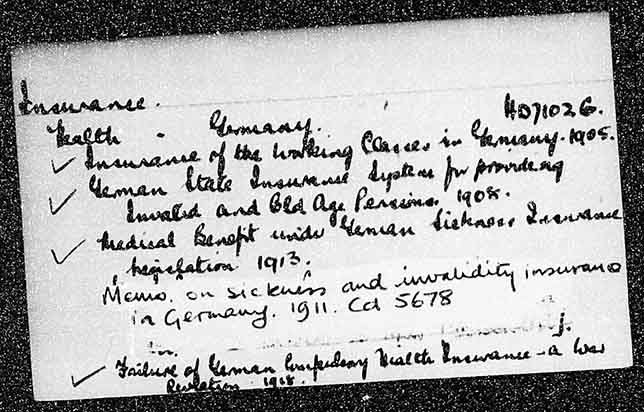 Insurance.
Health - Germany. HD7102G.
✓ Insurance of the Working Classes in Germany. 1905.
✓ German State Insurance System for providing
Invalid and Old Age Pensions. 1908.
✓ Medical Benefit under German Sickness Insurance
Legislation 1913.
Memo. on sickness and invalidity insurance
in Germany. 1911. Cd 5678
✓ Failure of German Compulsory Health Insurance - a War
Revelation 1918.